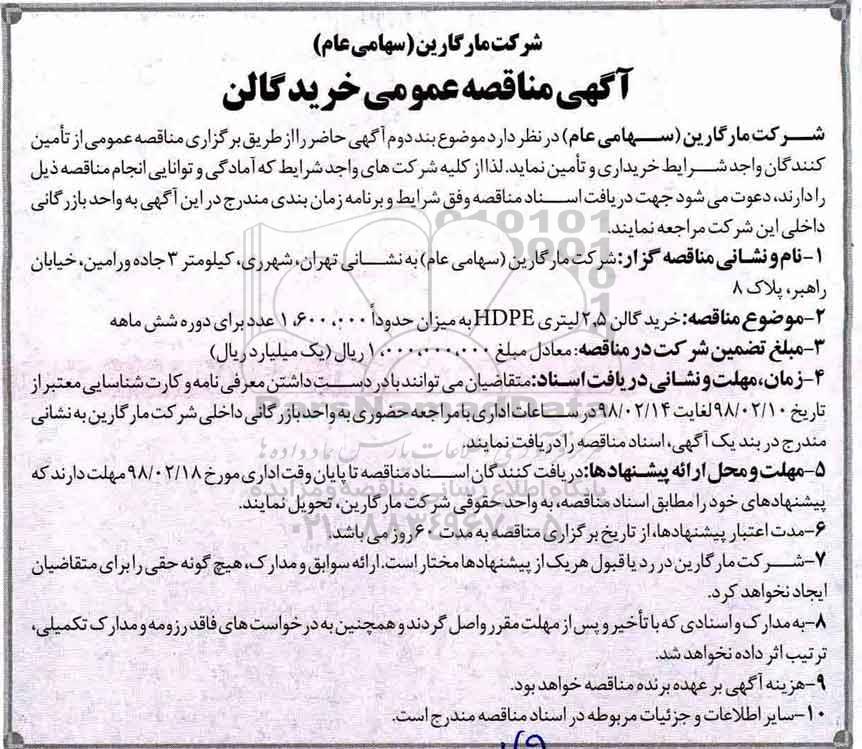 شرکت مارگارین (سهامی عام)
آگهی مناقصه عمومی خرید گالن
شرکت مارگارین (سهامی عام) در نظر دارد موضوع بند دوم آگهی حاضر را از طریق برگزاری مناقصه عمومی از تأمین
کنندگان واجد شرایط خریداری و تأمین نماید. لذا از کلیه شرکت های واجد شرایط که آمادگی و توانایی انجام مناقصه ذیل
را دارند، دعوت می شود جهت دریافت اسناد مناقصه وفق شرایط و برنامه زمان بندی مندرج در این آگهی به واحد بازرگانی
داخلی این شرکت مراجعه نمایند.
۱-نام و نشانی مناقصه گزار: شرکت مارگارین (سهامی عام) به نشانی تهران، شهرری، کیلومتر ۳ جاده ورامین، خیابان
راهبر، پلاک ۸
۲-موضوع مناقصه: خرید گالن ۲,۵ لیتری HDPE به میزان حدوداً ۱,۶۰۰,۰۰۰ عدد برای دوره شش ماهه
۳-مبلغ تضمین شرکت در مناقصه: معادل مبلغ ۱,۰۰۰,۰۰۰,۰۰۰ ریال (یک میلیارد ریال)
۴-زمان، مهلت و نشانی دریافت اسناد: متقاضیان می توانند با در دست داشتن معرفی نامه و کارت شناسایی معتبر از
تاریخ ۹۸/۰۲/۱۰ لغایت ۹۸/۰۲/۱۴ در ساعات اداری با مراجعه حضوری به واحد بازرگانی داخلی شرکت مارگارین به نشانی
مندرج در بند یک آگهی، اسناد مناقصه را دریافت نمایند.
۵-مهلت و محل ارائه پیشنهادها: دریافت کنندگان اسناد مناقصه تا پایان وقت اداری مورخ ۹۸/۰۲/۱۸ مهلت دارند که
پیشنهادهای خود را مطابق اسناد مناقصه، به واحد حقوقی شرکت مارگارین، تحویل نمایند.
۶-مدت اعتبار پیشنهادها، از تاریخ برگزاری مناقصه به مدت ۶۰ روز می باشد.
۷-شرکت مارگارین در رد یا قبول هریک از پیشنهادها مختار است. ارائه سوابق و مدارک، هیچ گونه حقی را برای متقاضیان
ایجاد نخواهد کرد.
۸-به مدارک و اسنادی که با تأخیر و پس از مهلت مقرر واصل گردند و همچنین به درخواست های فاقد رزومه و مدارک تکمیلی،
ترتیب اثر داده نخواهد شد.
۹-هزینه آگهی بر عهده برنده مناقصه خواهد بود.
۱۰-سایر اطلاعات و جزئیات مربوطه در اسناد مناقصه مندرج است.